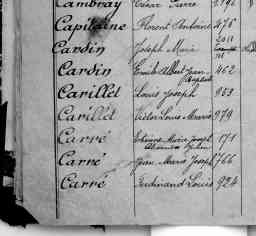 Cambray César Pierre
Capitaine Florent Antoine 476
Cardin Joseph Marie 2011
Cardin Emile Albert Jean 462
Baptiste
Carillet Louis Joseph 953
Carillet Victor Louis Marie 979
Carré Etienne Marie Joseph 171
Carré Jean Marie Joseph 766
Carré Ferdinand Louis 924